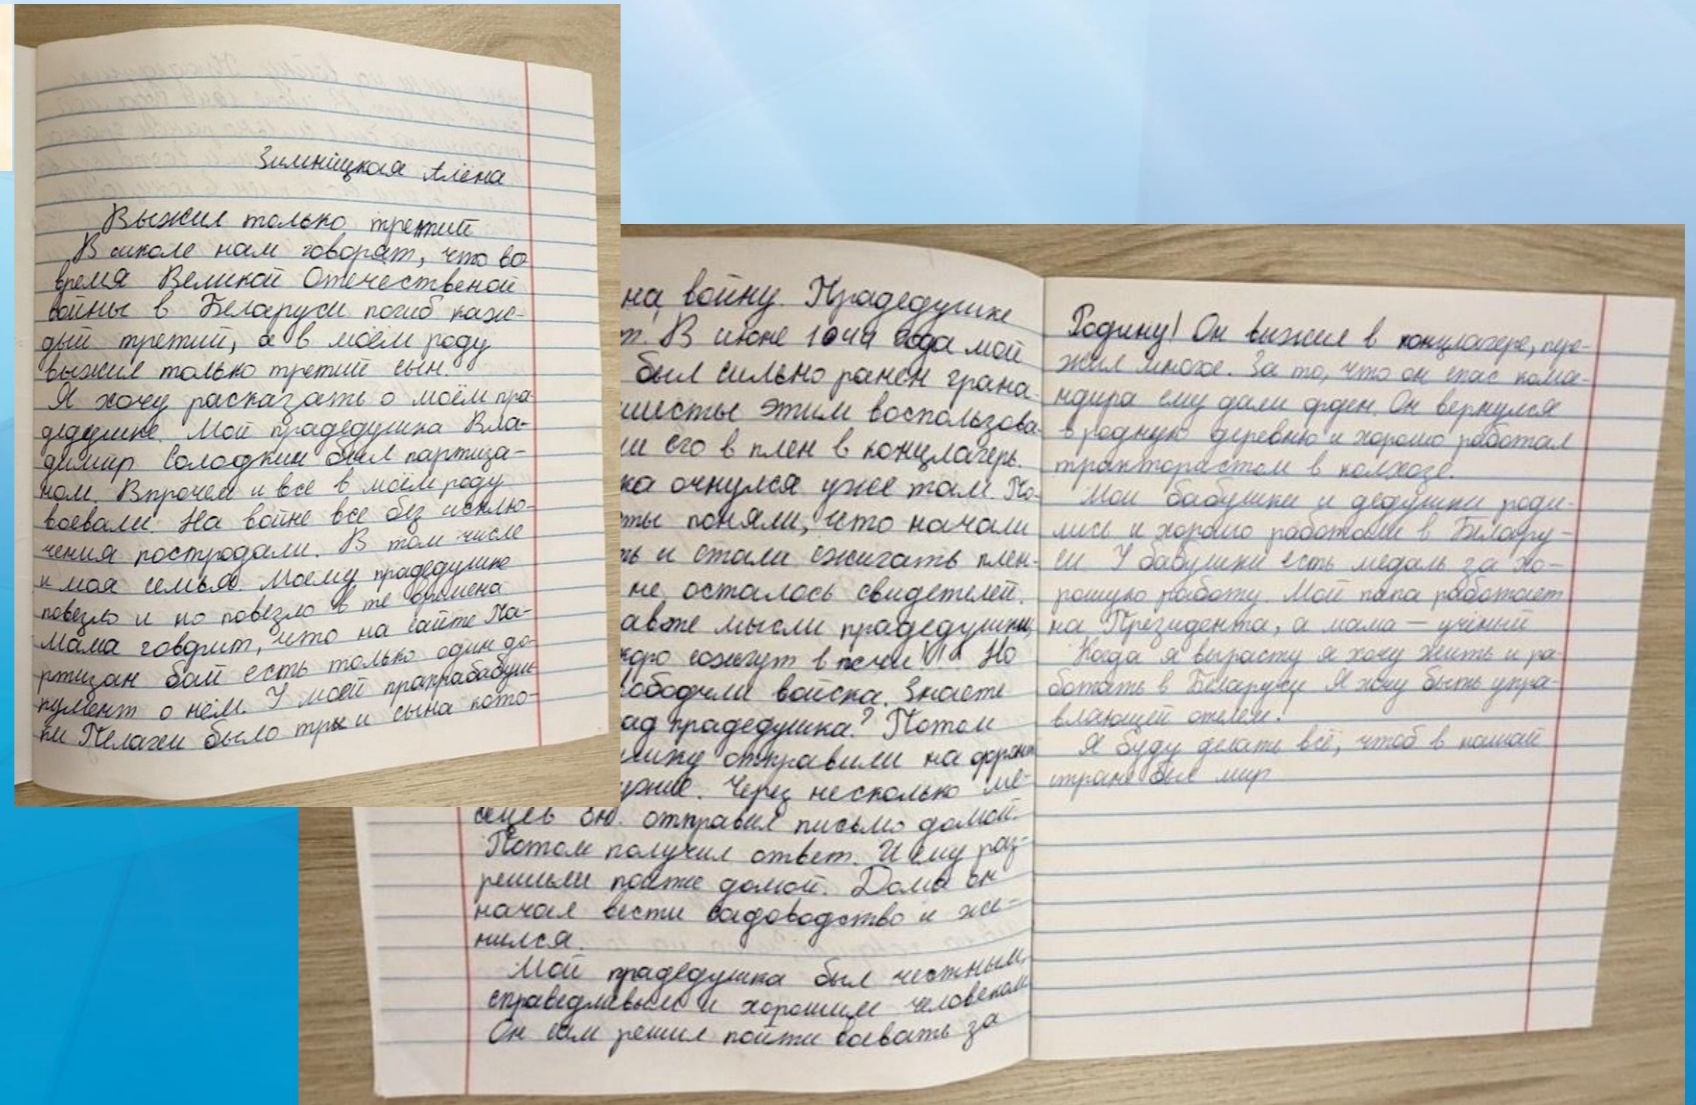 Зимніцкая Алёна
Выжил только третий
В школе нам говорят, что во
время Великой Отечественой
войны в Беларуси погиб каж-
дый третий, а в моём роду
выжил только третий сын.
Я хочу расказать о моём пра-
дедушке. Мой прадедушка Вла-
димир Солодкин был партиза-
ном. Впрочем и все в моём роду
воевали. На войне все без исклю-
чения постродали. В том числе
и моя семья. Моему прадедушке
повезло и но повезло в те времена
Мама говорит, что на сайте Па-
ртизан бай есть только один до-
кумент о нём. У моей прапрабабуш-
ки Пелагеи было три сына кото-
на войну. Прадедушке
т. В июне 1944 года мой
был сильно ранен грана-
шисты этим воспользова-
ли его в плен в концлагерь.
ка очнулся уже там. По-
ты поняли, что начали
ть и стали сжигать плен-
не осталось свидетелей.
мысли прадедушки,
коро сожгут в печи!" Но
ободили войска. Знаете
ад прадедушка? Потом
отправили на фронт
Через несколько ме-
сецев он отправил письмо домой.
Потом получил ответ. И ему раз-
решили пойти домой. Дома он
начал вести садоводство и же-
нился.
Мой прадедушка был честным,
справедливым и хорошим человеком
Он сам решил пойти воевать за
Родину! Он выжил в концлагере, пере-
жил многое. За то, что он спас кома-
ндира ему дали орден. Он вернулся
в родную деревню и хорошо работал
трактористом в колхозе.
Мои бабушки и дедушки роди-
лись и хорошо работали в Белару-
си. У бабушки есть медаль за хо-
рошую работу. Мой папа работает
на Президента, а мама – учёный
Когда я вырасту я хочу жить и ра-
ботать в Беларуси Я хочу быть упра-
вляющей отелем.
Я буду делать всё, чтоб в нашей
стране был мир